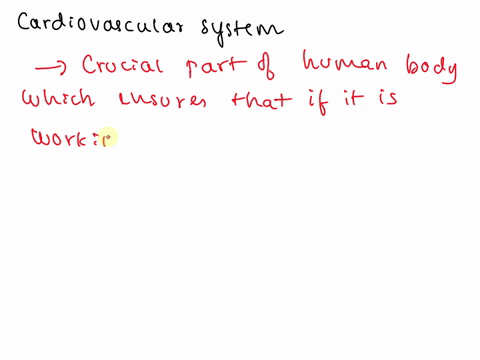 Cardiovascular system
→ Crucial part of human body
which ensures that if it is
workin